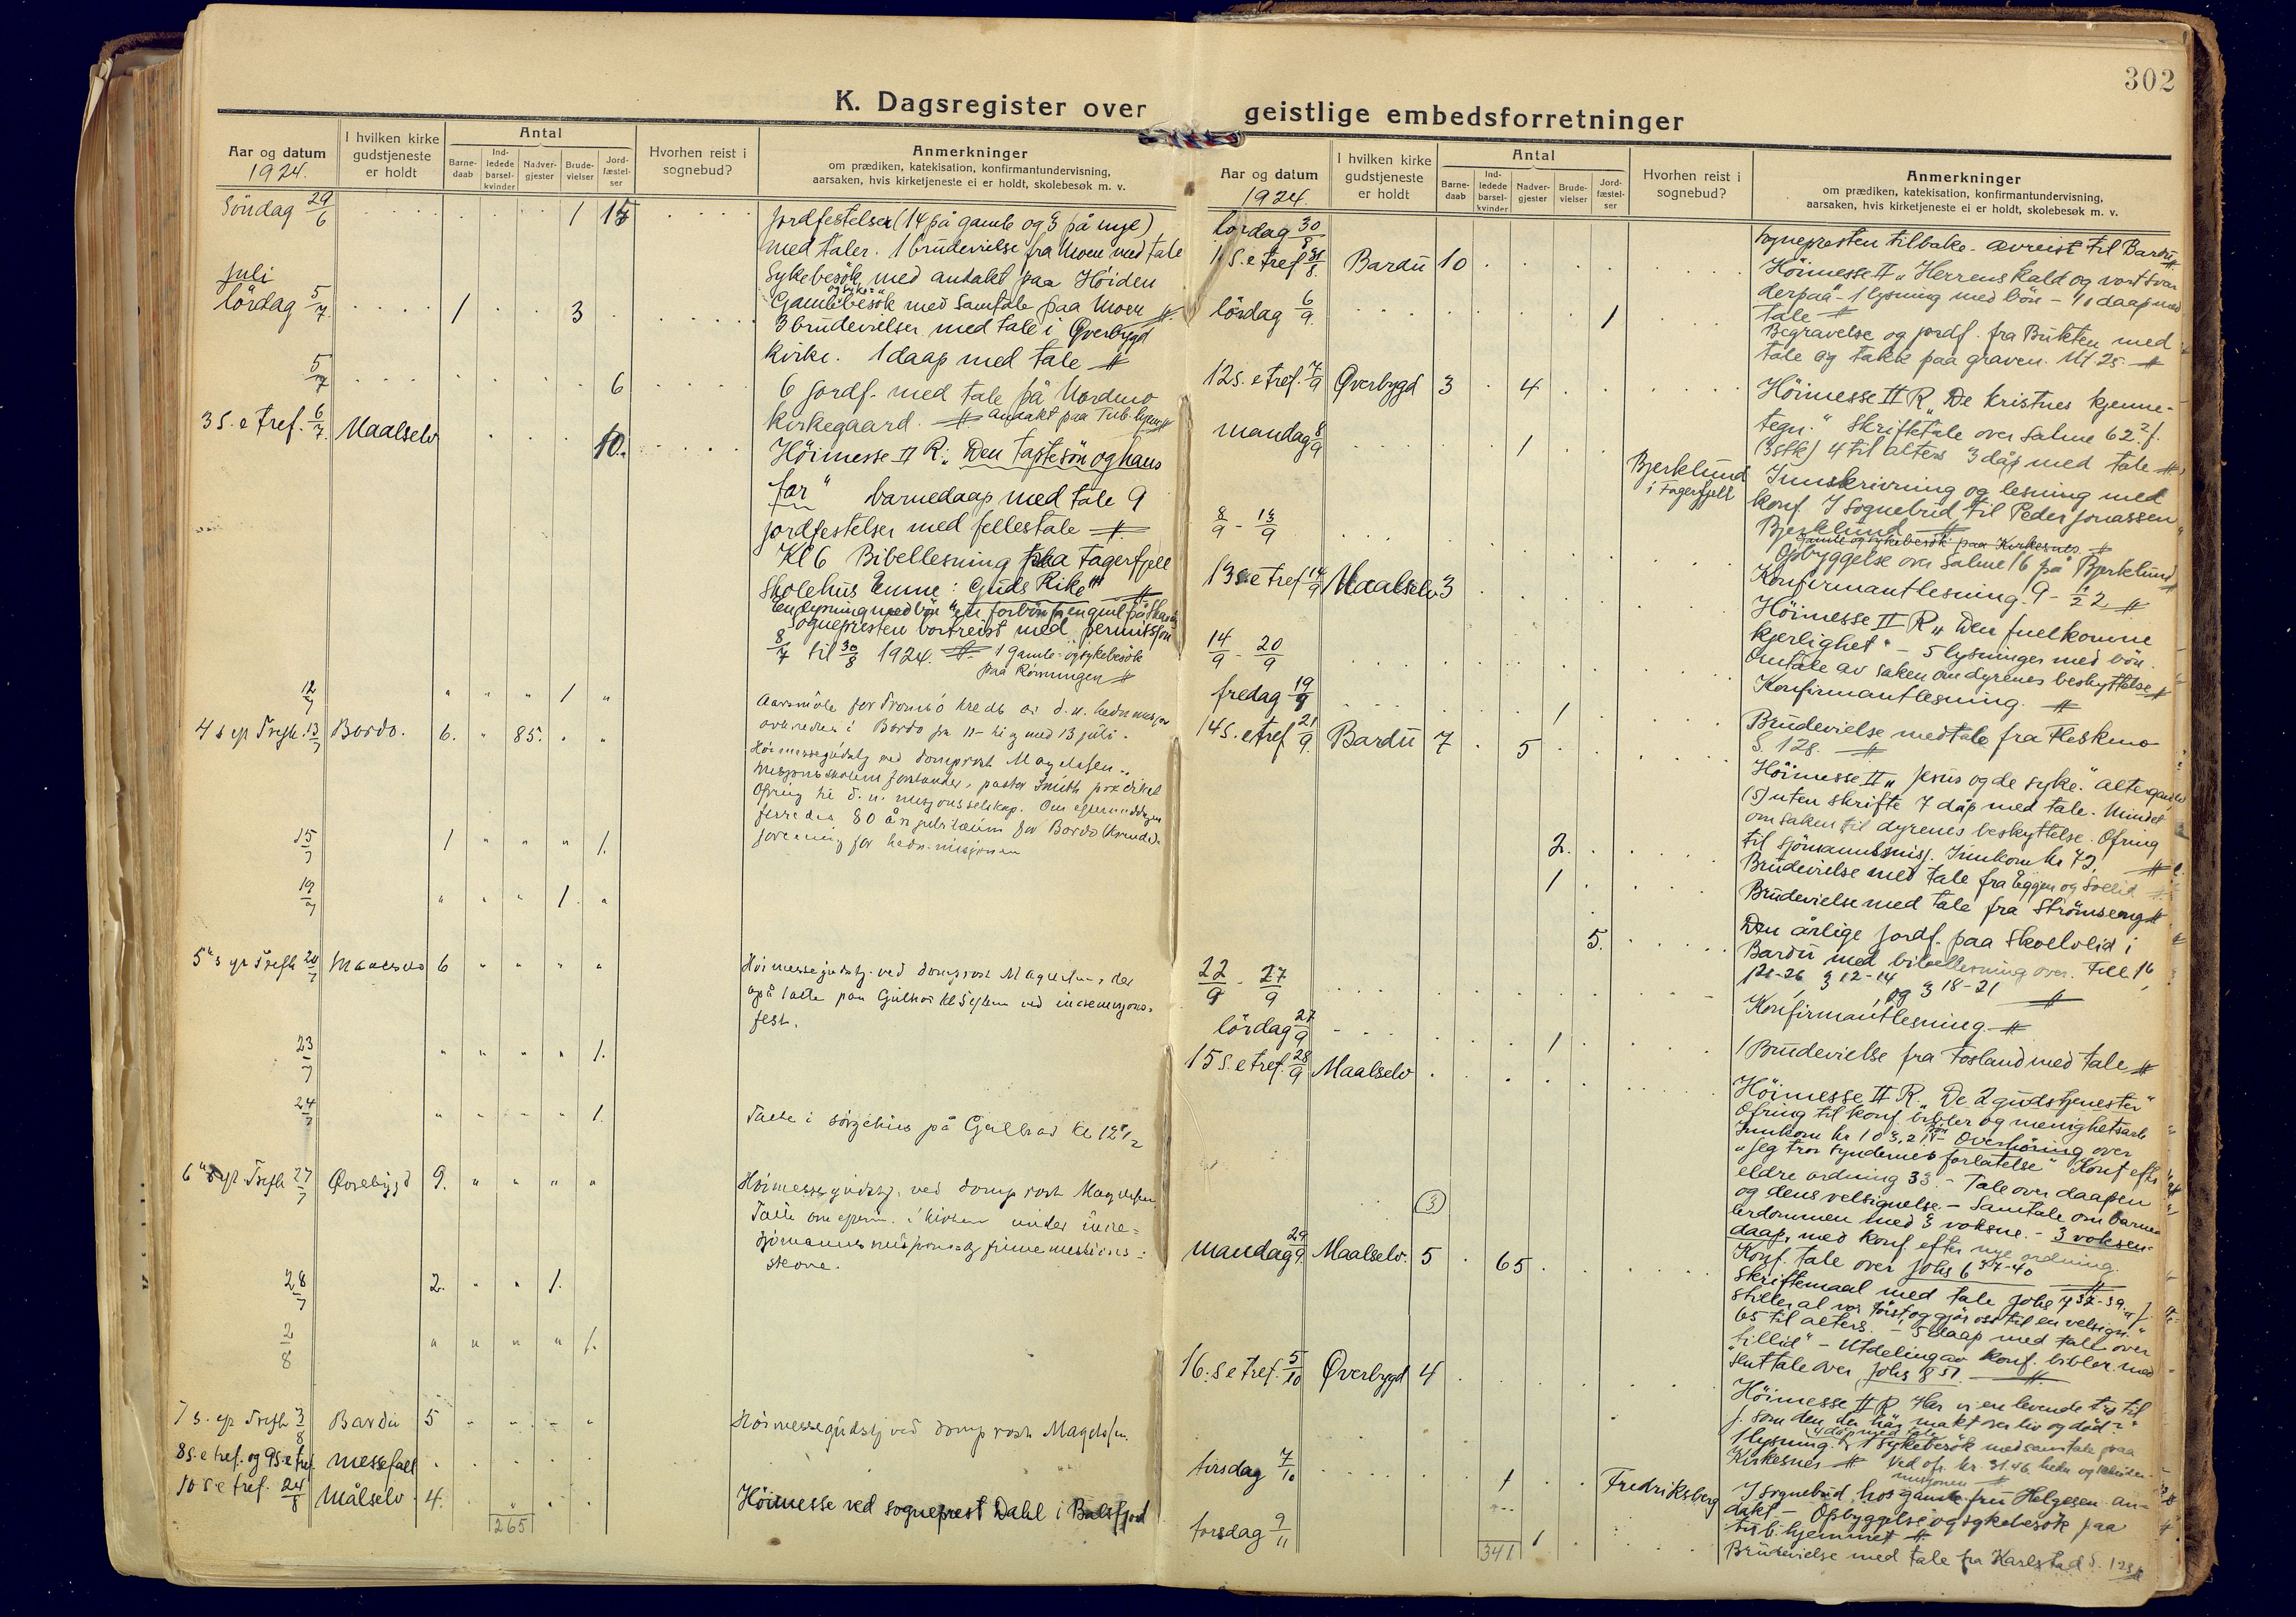 302
K. Dagsregister over geistlige embedsforretninger
Aar og datum
1924.
I hvilken kirke gudstjeneste er holdt
Antal
Barne-daab
Ind-ledede barsel-kvinder
Nadver-gjester
Brude-vielser
Jord-fæstel-ser
Hvorhen reist i sognebud?
Anmerkninger
om prædiken, katekisation, konfirmantundervisning,
aarsaken, hvis kirketjeneste ei er holdt, skolebesøk m. v.
Söndag 29/6 1
Jordfestelser (14 på gamle og 3 på nye)
med taler. 1 brudevielse fra Moen med tale
Sykebesök med andakt paa Höiden
Juli
lördag 5/7. 1 3
og syke
Gamlebesök med samtale paa Moen #
3 brudevielser med tale i Øverbygd
Kirke. 1 daap med tale #
5/7 6
6 jordf. med tale på Nordmo
Kirkegaard. # Andakt paa Tub. hjem #
3 S. e tref. 6/7. Maalselv 10.
Höimesse II R. „Den tapte sön og hans
far" barnedaap med tale 9
jordfestelser med fellestale #
Kl 6 Bibellesning paa Fagerfjell
Skolehus Emne: „Guds Rike" #
Sognepresten bortreist med permission
8/7 til 30/8 1924. # 1 Gamle- og sykebesök
paa Rönningen #
12/7 " " " 1 "
Aarsmöte for Tromsö kreds av d. n. hedn misjon
4 s ep Trefh. 13/7 Bardo. 6. " 85. " "
i Bardo fra 11- til og med 13 juli.
Höimessegudstj ved domprost Magelssen.
pastor Smith
Ofring til d. n. misjonsselskap. Om eftermiddagen
80 års jubilæum for Bardo (Kvinde).
forening for hedn. misjonen
15/7 1 " " " 1.
19/7 " " " 1. "
5" s ep Trefh 20/7 Maalselv 6 " " " "
Höimessegudstj. ved domprost Magelssen, der
også talte paa Gulhav kl 5
fest.
23/7 " " " " 1.
24/7 " " " " 1.
Talte i sörgehus på Gulhav kl 12 1/2
6" s ep Trefh 27/7 Øverbygd 9. " " " "
Höimessegudstj. ved domprost Magelssen.
Talte om efterm. i kirken under
28/7 2. " " 1.
2/8 " " " " 1.
7 s. ep Trefh 3/8 Bardu 5 " " " "
Höimessegudstj ved domprost Magelssen.
8 s. e tref. og 9 s. e tref messefall
10 s e tref. 24/8 Målselv. 4.
Höimesse ved sogneprest Dahl i Balsfjord
265
Aar og datum
1924.
I hvilken kirke gudstjeneste er holdt
Antal
Barne-daab
Ind-ledede barsel-kvinder
Nadver-gjester
Brude-vielser
Jord-fæstel-ser
Hvorhen reist i sognebud?
Anmerkninger
om prædiken, katekisation, konfirmantundervisning,
aarsaken, hvis kirketjeneste ei er holdt, skolebesøk m. v.
lördag 30/8
Sognepresten tilbake. avreist til Bardu #
11. S. e tref 31/8. Bardu 10
Höimesse II „Herrens kald og vort svar
derpaa" - 1 lysning med bön - 10 daap med
tale #
lördag 6/9. 1
Begravelse og jordf. fra Bukten med
tale og takk paa graven. M 25. #
12 s. e tref. 7/9 Øverbygd 3 4
Höimesse II R „De kristnes kjenne-
tegn." Skriftetale over Salme 62 2 f.
(3 stk) 4 til alters 3 dåp med tale #
mandag 8/9 1 Bjerklund i Fagerfjell
Innskrivning og lesning med
konf. I Sognebud til Peder Jonassen
Bjerklund #
Gamle og sykebesök paa Kirkesnes #
Opbyggelse over Salme 16 på Bjerklund #
8/9 - 13/9
Konfirmantlesning. 9 - 1/2 2 #
13 s e tref 14/9 Maalselv 3
Höimesse II R „Den fuelkomne
kjerlighet" - 5 lysninger med bön.
Omtale av saken om dyrenes beskyttelse #
14/9 - 20/9
Konfirmantlesning. #
fredag 19/9 1
Brudevielse med tale fra Fleskmo
S. 128. #
14 s. e tref 21/9. Bardu 7 5
Höimesse II „Jesus og de syke." altergang
(5) uten skrifte 7 dåp med tale. Mindet
om saken til dyrenes beskyttelse. Ofring
til sjömannsmisj. Innkom kr 72, #
2.
Brudevielse med tale fra Eggen og Solli #
1
Brudevielse med tale fra Strömseng #
5.
Den årlige jordf. paa Skoelvlid i
Bardu med bibellesning over. Fill 1 6
21-26 3 12-14 og 3 18-21 #
22/9 - 27/9
Konfirmantlesning. #
lördag 27/9 1
1 Brudevielse fra Fosland med tale #
15 s. e tref. 28/9 Maalselv
Höimesse II R. „De 2 gudstjenester"
Ofring til konf. bibler og menighetsark
Innkom kr 103,21. Overhöring over
„Jeg tror syndernes forlatelse" Konf efter
eldre ordning 33. - Tale over daapen
og dens velsignelse. - Samtale om barne
lerdommen med 3 voksne. - 3 voksen-
(3)
daap, med konf. efter nye ordning.
Konf. tale over Johs 6 37-40 #
mandag 29/9. Maalselv. 5 65
Skriftemaal med tale Johs 7 37-39.
stiller al vor törst og gjör oss til en velsign."
65 til alters. - 5 daap med tale over
„tillid" - Utdeling av konf. bibler med
slutttale over Johs 8 51. #
16. s e tref. 5/10 Øverbygd 4
Höimesse II R Har vi en levende tro til
J. som den der har makt over liv og död?"
4 dåp med tale
1 lysning. 1 sykebesök med samtale paa
Kirkesnes # Ved of. kr. 31.46 hedn og
misjonen #
tirsdag 7/10 1 Fredriksberg
I sognebud hos gamle fru Helgesen an-
dakt - Opbyggelse og sykebesök paa
tub. hjemmet #
torsdag 9/11 1
Brudevielse med tale fra Karlstad S. 128 #
341